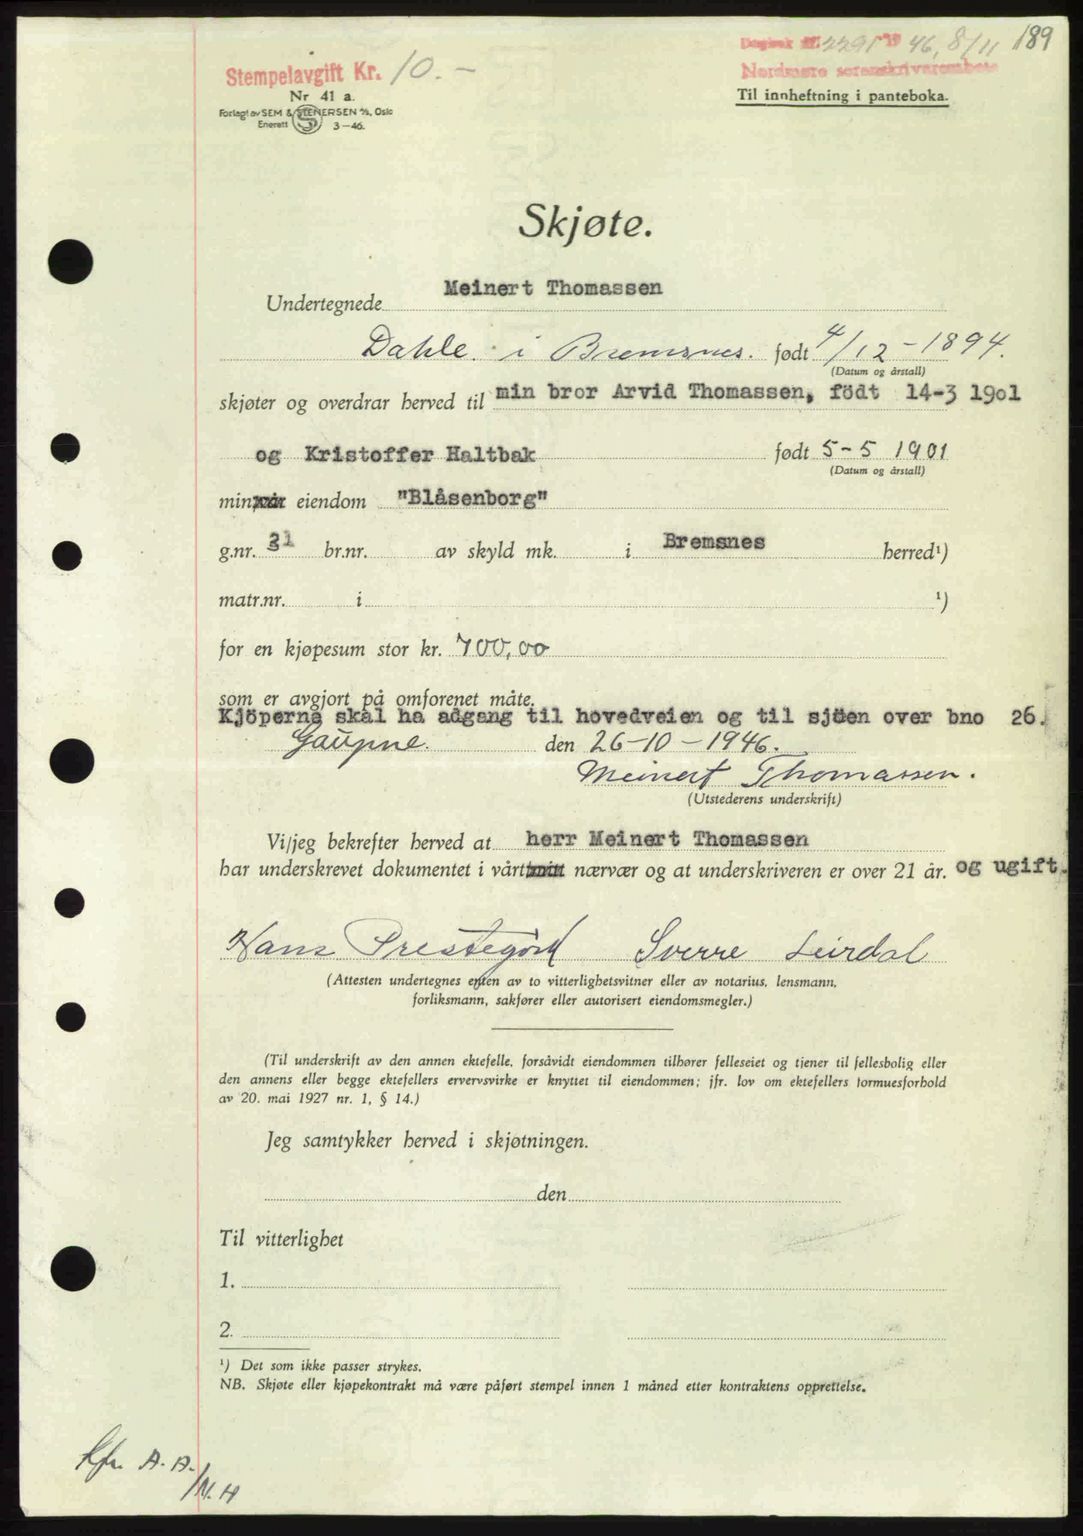 Dagbok nr. 2291 19 46, 8/11 189
Stempelavgift Kr. 10.-
Nordmøre sorenskrivarembete
Nr 41 a.
Til innheftning i panteboka.
Forlagt av SEM & STENERSEN A/S, Oslo
Enerett S 3-46.
Skjøte.
Undertegnede Meinert Thomassen
Dahle i Bremsnes. født 4/12-1894.
(Datum og årstall)
skjøter og overdrar herved til min bror Arvid Thomassen, födt 14-3 1901
og Kristoffer Haltbak født 5-5 1901
(Datum og årstall)
min/vår eiendom "Blåsenborg"
g.nr. 31 br.nr. av skyld mk. i Bremsnes herred¹)
matr.nr. i ¹)
for en kjøpesum stor kr. 700,00
som er avgjort på omforenet måte.
Kjöperne skal ha adgang til hovedveien og til sjöen over bno 26.
Gaupne. den 26-10-1946.
Meinert Thomassen.
(Utstederens underskrift)
Vi/jeg bekrefter herved at herr Meinert Thomassen
har underskrevet dokumentet i vårt/mitt nærvær og at underskriveren er over 21 år. og ugift.
Hans Prestegård Sverre Leirdal
(Attesten undertegnes enten av to vitterlighetsvitner eller av notarius, lensmann,
forliksmann, sakfører eller autorisert eiendomsmegler.)
(Til underskrift av den annen ektefelle, forsåvidt eiendommen tilhører felleseiet og tjener til fellesbolig eller
den annens eller begge ektefellers ervervsvirke er knyttet til eiendommen; jfr. lov om ektefellers formuesforhold
av 20. mai 1927 nr. 1, § 14.)
Jeg samtykker herved i skjøtningen.
den
Til vitterlighet
1.
2.
¹) Det som ikke passer strykes.
NB. Skjøte eller kjøpekontrakt må være påført stempel innen 1 måned etter kontraktens opprettelse.
A. A.
/N. H